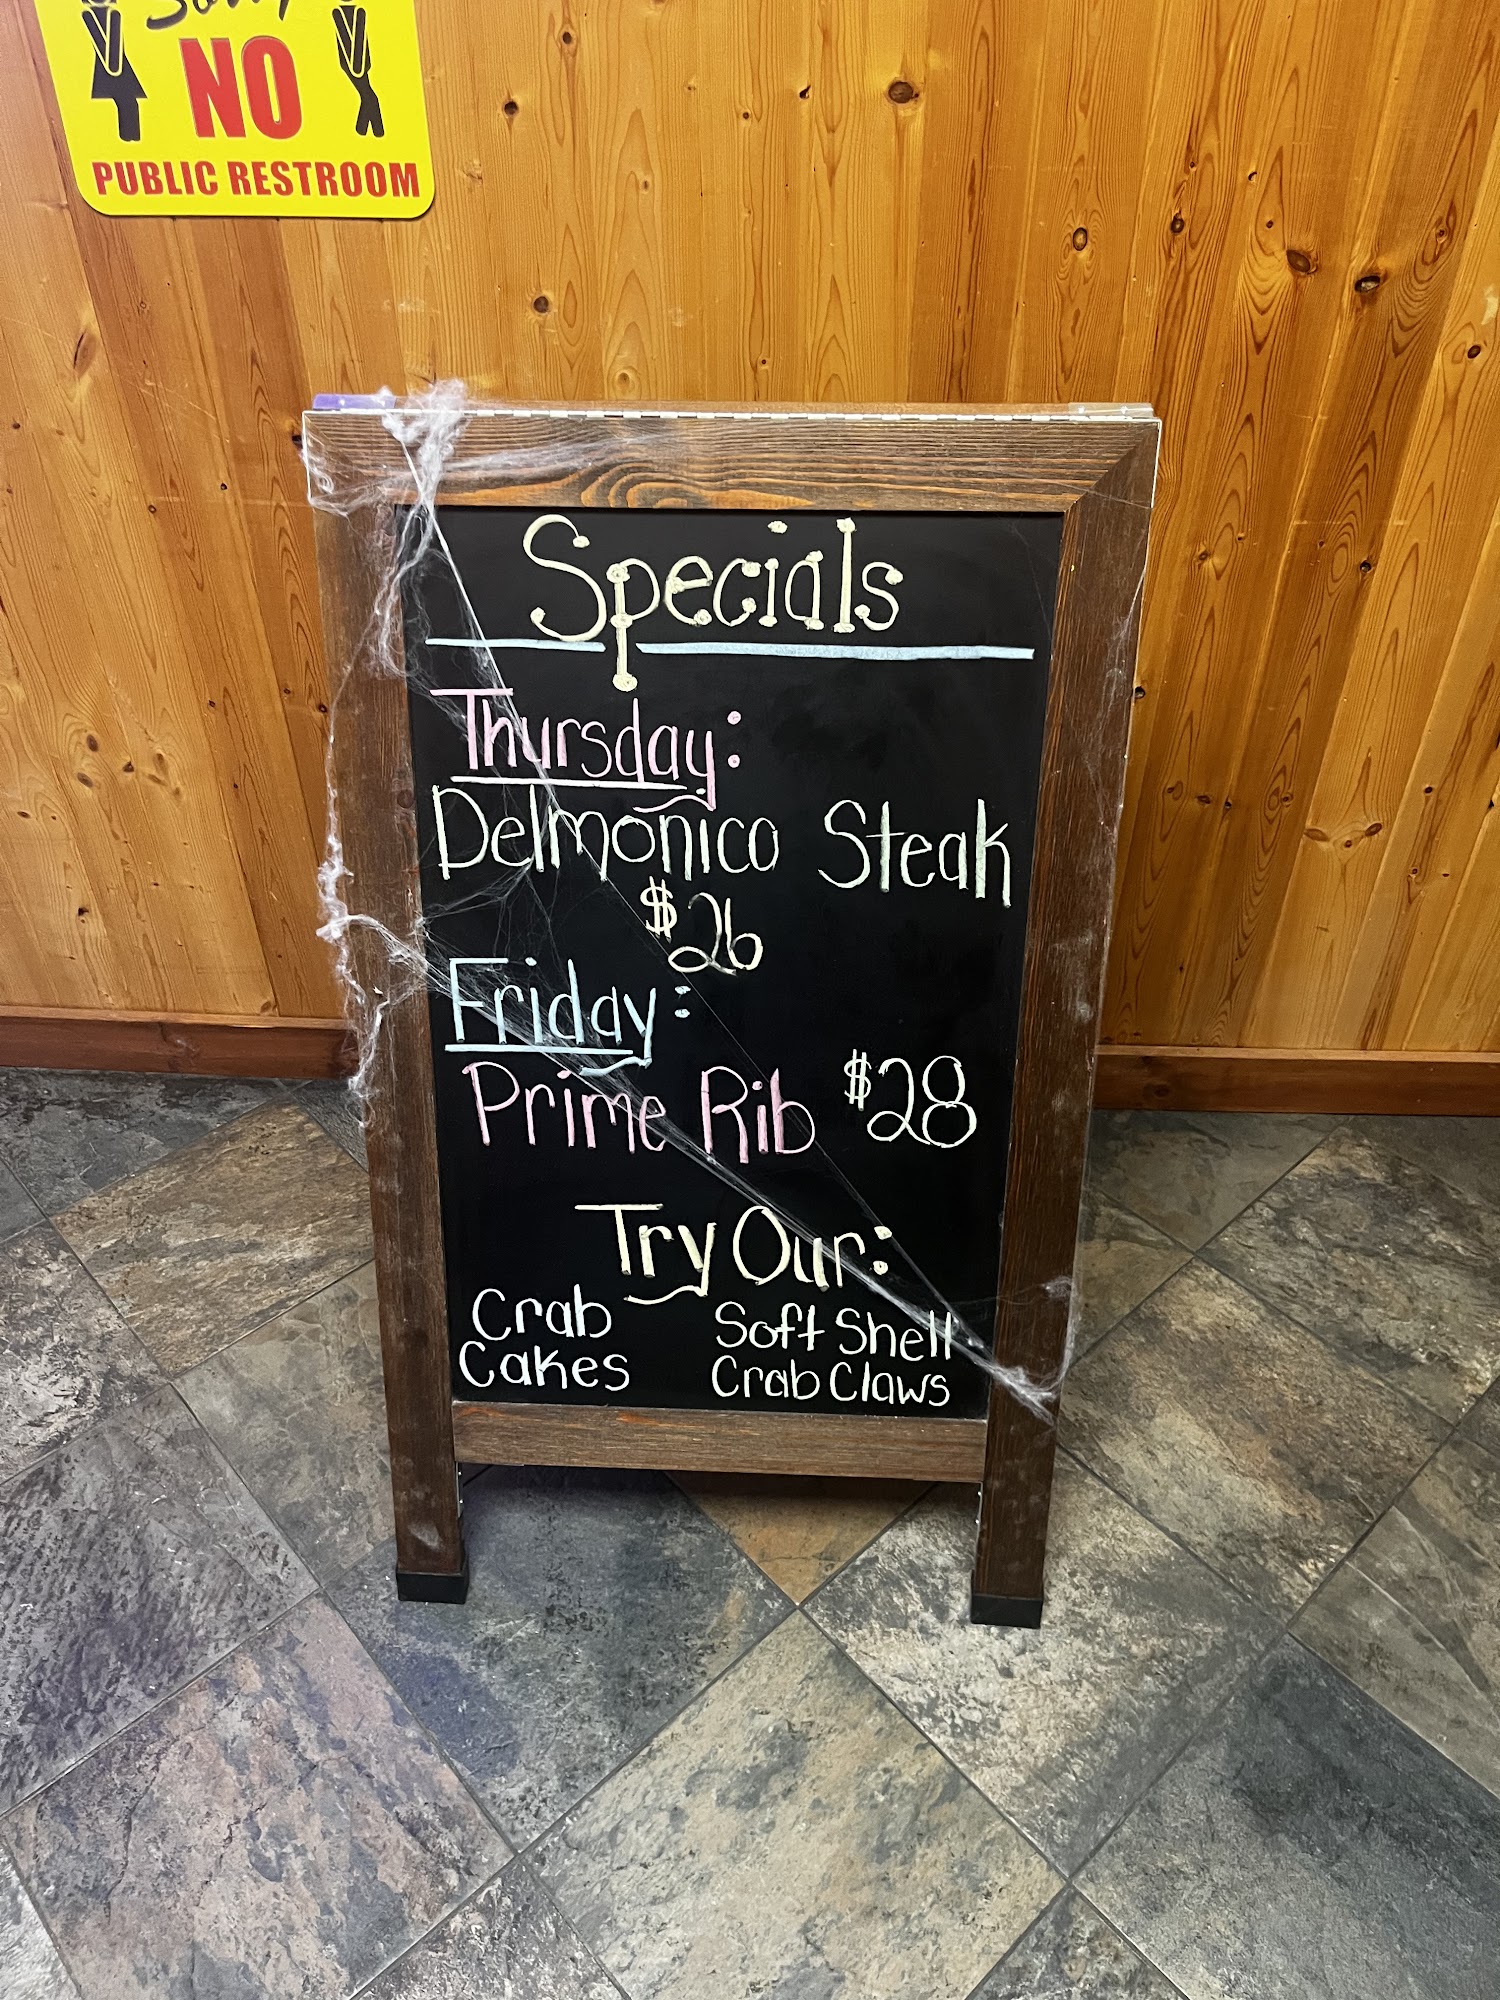 Sorry
NO
PUBLIC RESTROOM
Specials
Thursday:
Delmonico Steak
$26
Friday:
Prime Rib $28
Try Our:
Crab
Cakes
Soft Shell
Crab Claws